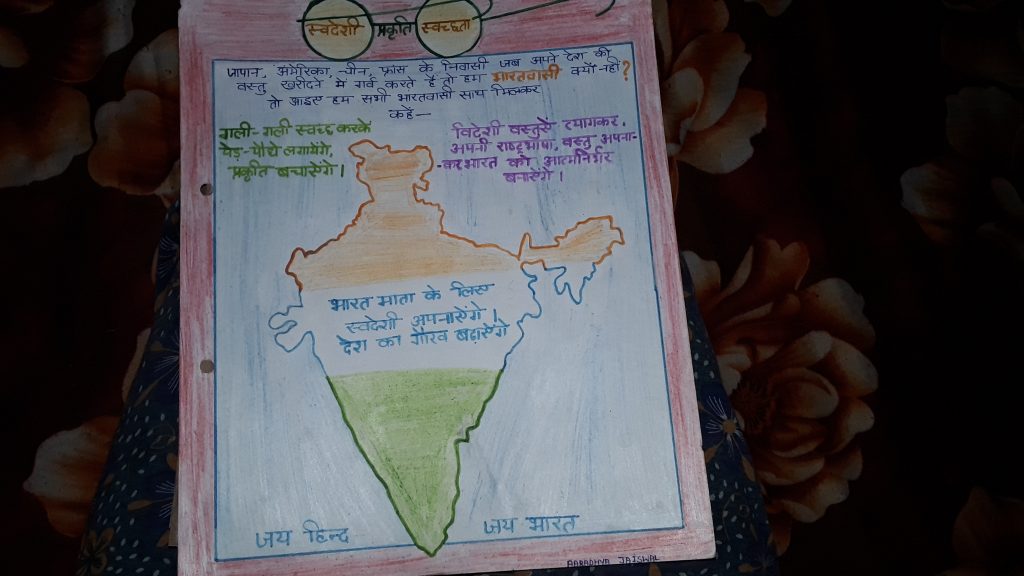 स्वदेशी प्रकृति स्वच्छता
जापान, अमेरिका, चीन, फ्रांस के निवासी जब अपने देश की
वस्तु खरीदने मे गर्व करते है तो हम भारतवासी क्यों नहीं?
तो आइए हम सभी भारतवासी साथ मिलकर
कहें—
गली-गली स्वच्छ करके
पेड़-पौधे लगायेंगे,
प्रकृति बचाएंगे।
विदेशी वस्तुएँ त्यागकर,
अपनी राष्ट्रभाषा, वस्तु अपना-
-कर भारत को आत्मनिर्भर
बनाएंगे।
भारत माता के लिए
स्वदेशी अपनाएंगे।
देश का गौरव बढ़ाएंगे
जय हिन्द
जय भारत
AARADHYA JAISWAL